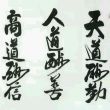 天道酬勤
人道酬善
商道酬信